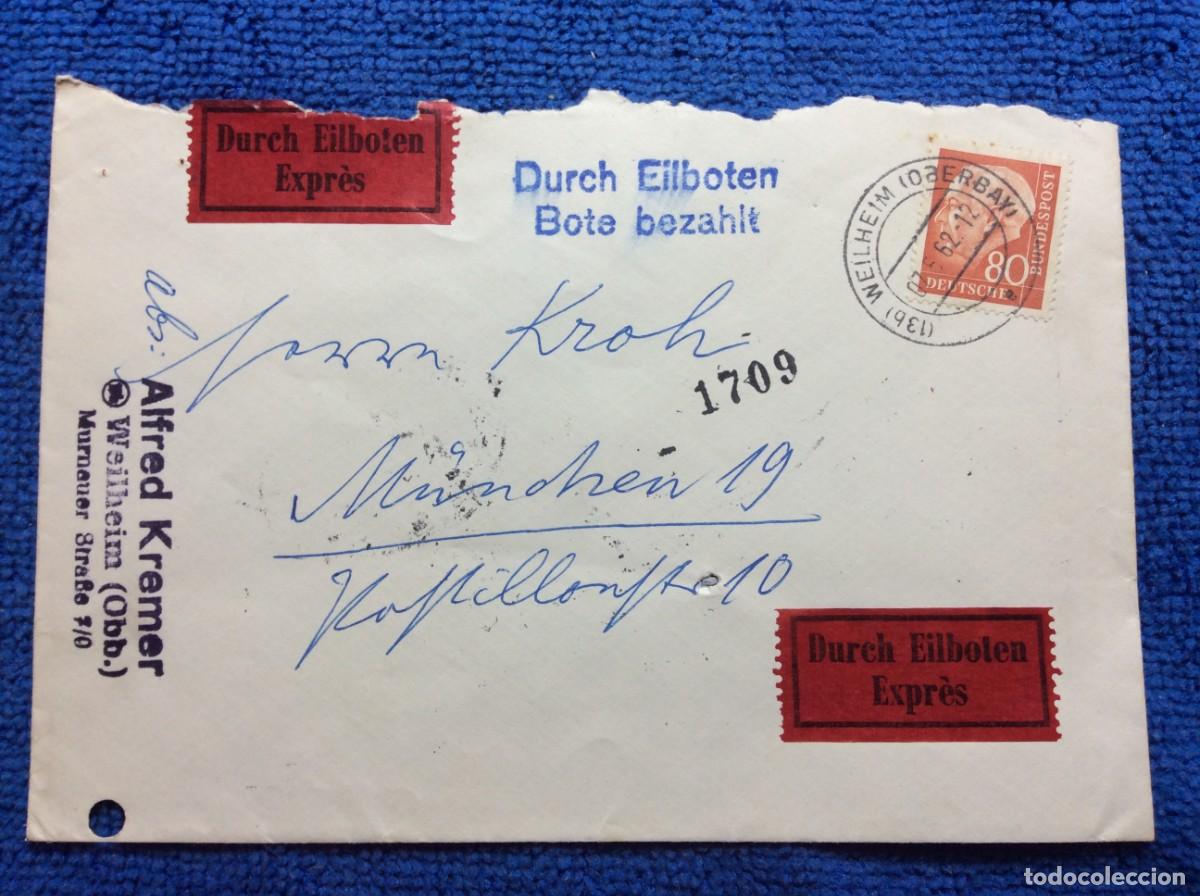 Durch Eilboten
Exprès
Durch Eilboten
Bote bezahlt
(13b) WEILHEIM (OBERBAY)
62.-12
80
DEUTSCHE
BUNDESPOST
Abs:
Alfred Kremer
Weilheim (Obb.)
Murnauer Straße 7/0
Herrn Kroh
1709
München 19
Postillonstr 10
Durch Eilboten
Exprès
todocoleccion